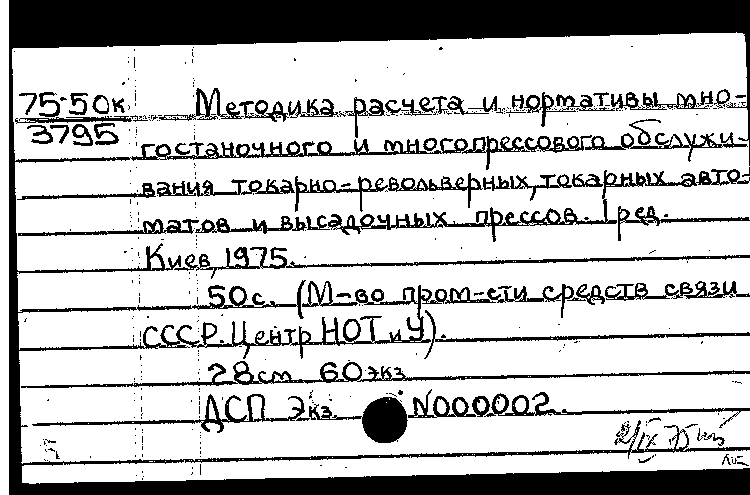 75-50к Методика расчета и нормативы мно-
3795 гостаночного и многопрессового обслужи-
вания токарно-револьверных, токарных авто-
матов и высадочных прессов. 1 ред.
Киев, 1975.
50с. (М-во пром-сти средств связи
СССР. Центр НОТ и У).
28см 60 экз
ДСП Экз. N000002.
2/IX 75